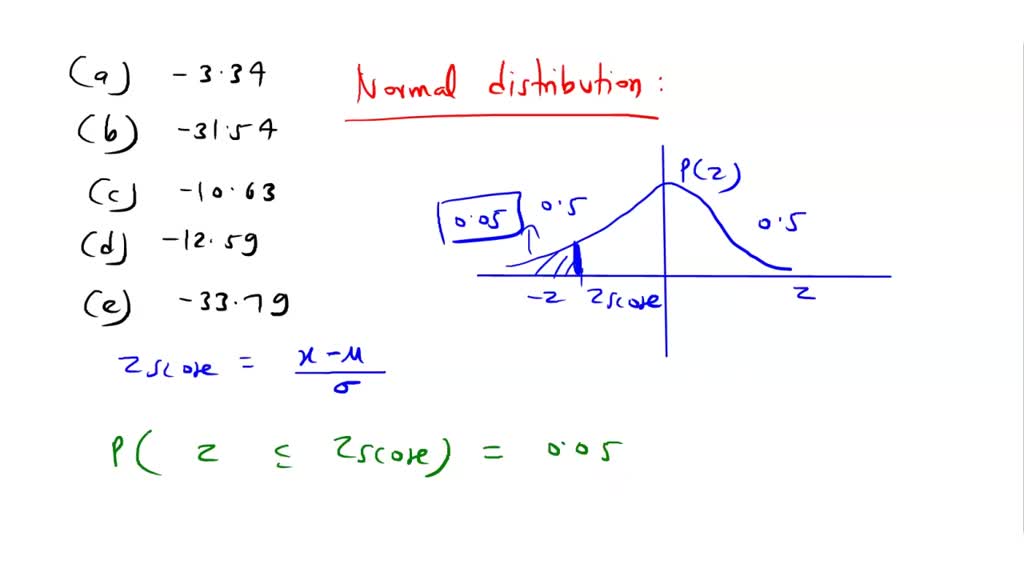 (a) -3.34
Normal distribution:
(b) -31.54
(c) -10.63
(d) -12.59
(e) -33.79
P(z)
0.05
0.5
0.5
-z
zscore
z
zscore = x-μ
σ
P( z ≤ zscore) = 0.05